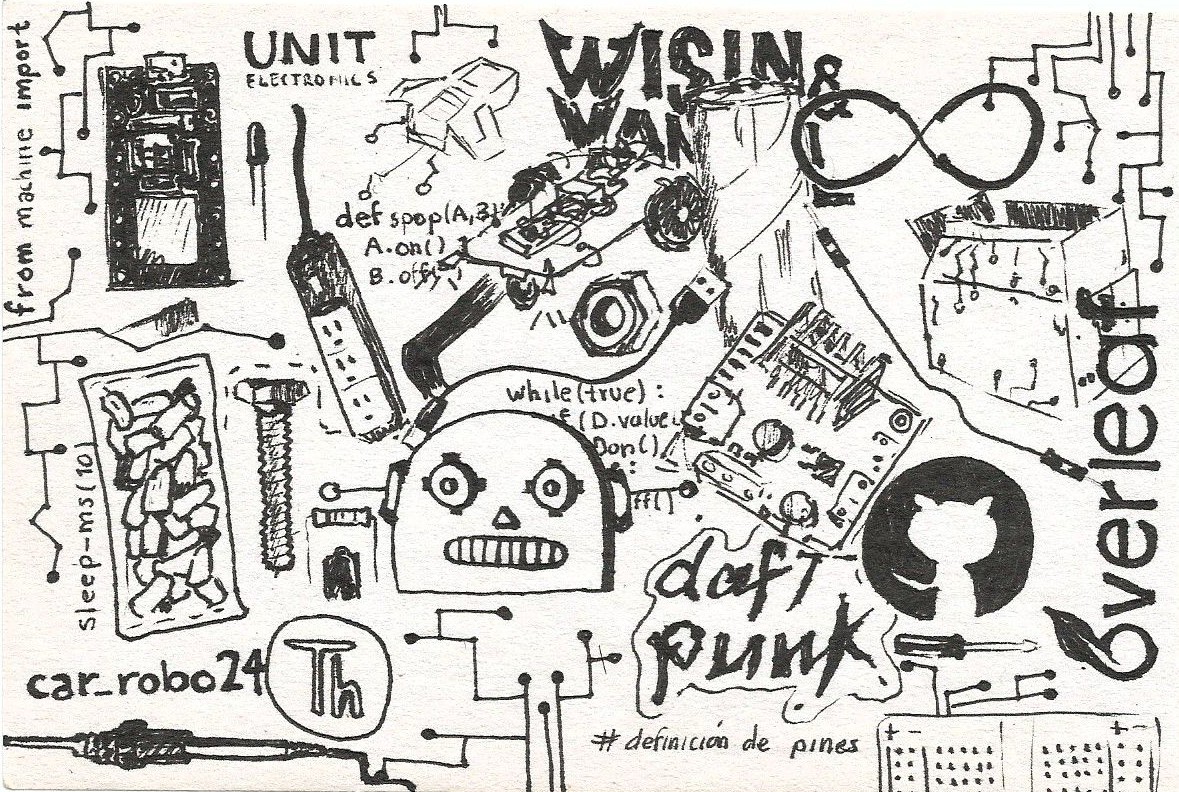 from machine import
UNIT
ELECTRONICS
WISIN
&
def spop(A,B):
A.on()
B.off
while(true):
if (D.value
Don()
ff()
sleep-ms(10)
overleaf
daft
punk
car_robo24
Th
# definición de pines
+ -
+ -